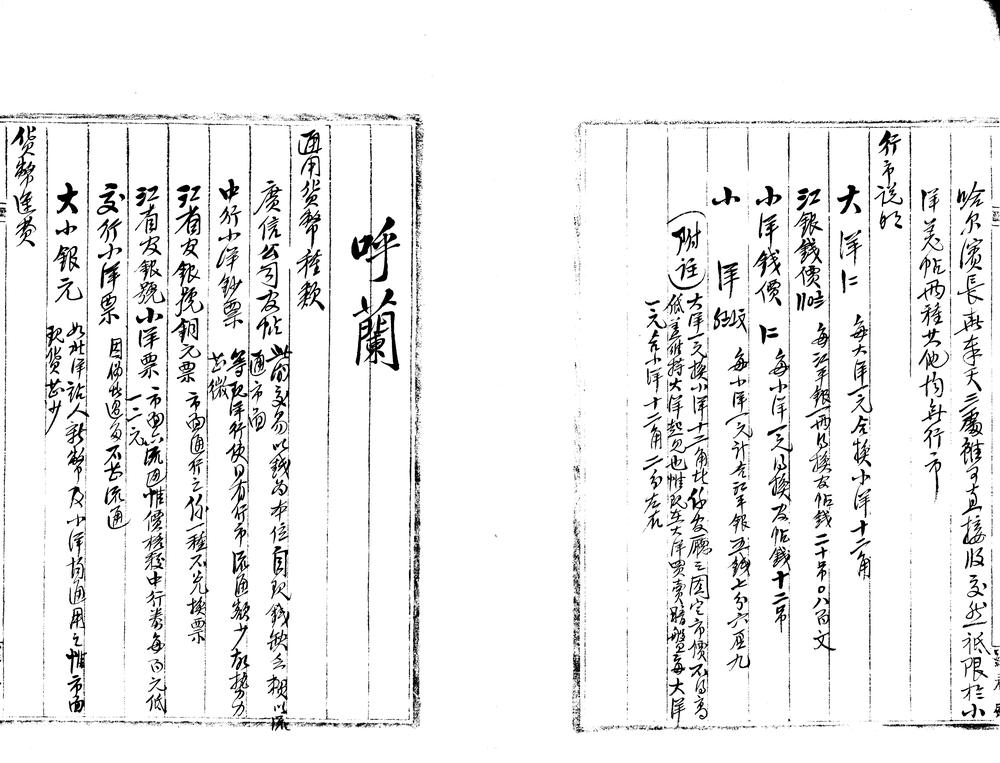 哈尔濱長春奉天三處雖可直接收交然祇限於小
洋羌帖兩種其他均無行市
行市説明
大洋仁　每大洋一元合換小洋十二角
江銀錢價　每江平銀一両可換官帖錢二十吊〇八百文
小洋錢價仁　每小洋一元可換官帖錢十二吊
小洋　每小洋一元計合江平銀五錢七分六厘九
(附註)　大洋一元換小洋十二角此係官廳之固定市價不得高
低蓋維持大洋起見也惟現在大洋買賣暗盤每大洋
一元合小洋十二角二分左右
呼蘭
通用貨幣種類
廣信公司官帖　此前交易以錢為本位自現錢缺乏賴以流
通市面
中行小洋鈔票　等現洋行使日有行市流通額少故勢力
甚微
江省官銀號銅元票　市面通行之係一種不兌換票
江省官銀號小洋票　市面流通惟價格較中行券每百元低
一二元
交行小洋票　因倒把過多不甚流通
大小銀元　如北洋站人新幣及小洋均通用之惟市面
現貨甚少
貨幣運費